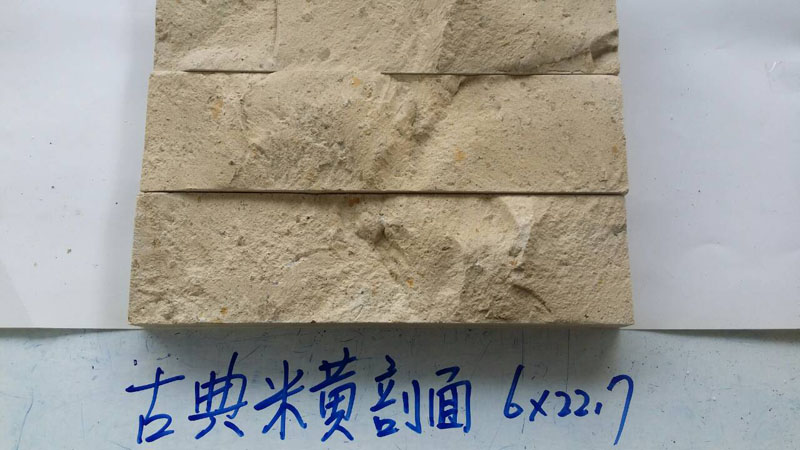 古典米黄剖面 6x22.7